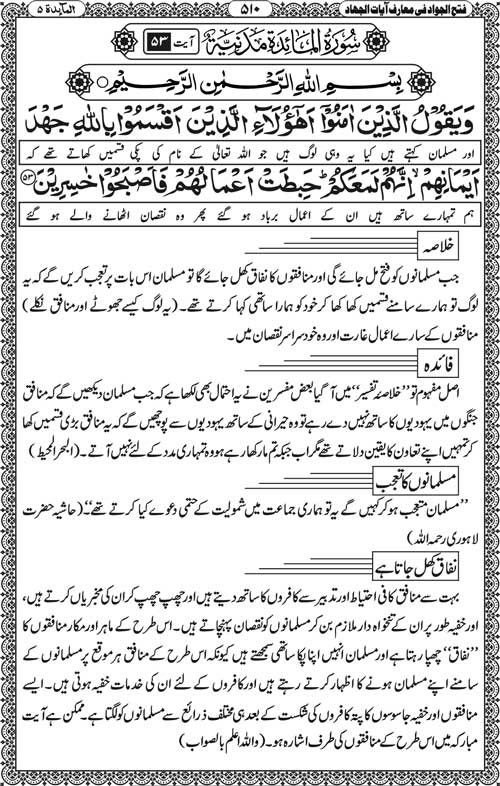 فتح الجواد فی معارف آیات الجهاد ۵۱۰ المائدۃ ۵
سُوْرَةُ الْمَائِدَةِ مَدَنِيَّةٌ آیت ۵۳
بِسْمِ اللهِ الرَّحْمٰنِ الرَّحِيْمِ
وَيَقُوْلُ الَّذِيْنَ اٰمَنُوْۤا اَهٰۤؤُلَآءِ الَّذِيْنَ اَقْسَمُوْا بِاللّٰهِ جَهْدَ
اور مسلمان کہتے ہیں کیا یہ وہی لوگ ہیں جو اللہ تعالیٰ کے نام کی پکی قسمیں کھاتے تھے کہ
اَيْمَانِهِمْ ۙ اِنَّهُمْ لَمَعَكُمْ ؕ حَبِطَتْ اَعْمَالُهُمْ فَاَصْبَحُوْا خٰسِرِيْنَ ﴿۵۳﴾
ہم تمہارے ساتھ ہیں ان کے اعمال برباد ہو گئے پھر وہ نقصان اٹھانے والے ہو گئے
خلاصہ
جب مسلمانوں کو فتح مل جائے گی اور منافقوں کا نفاق کھل جائے گا تو مسلمان اس بات پر تعجب کریں گے کہ یہ
لوگ تو ہمارے سامنے قسمیں کھا کھا کر خود کو ہمارا ساتھی کہا کرتے تھے۔ (یہ لوگ کیسے جھوٹے اور منافق نکلے)
منافقوں کے سارے اعمال غارت اور وہ خود سراسر نقصان میں۔
فائدہ
اصل مفہوم تو ”خلاصۂ تفسیر“ میں آ گیا بعض مفسرین نے یہ احتمال بھی لکھا ہے کہ جب مسلمان دیکھیں گے کہ منافق
جنگوں میں یہودیوں کا ساتھ نہیں دے رہے تو وہ حیرانی کے ساتھ یہودیوں سے پوچھیں گے کہ یہ منافق بڑی قسمیں کھا
کر تمہیں اپنے تعاون کا یقین دلاتے تھے مگر اب جبکہ تم مار کھا رہے ہو وہ تمہاری مدد کے لئے نہیں آتے۔ (البحر المحیط)
مسلمانوں کا تعجب
”مسلمان متعجب ہو کر کہیں گے یہ تو ہماری جماعت میں شمولیت کے حتمی دعوے کیا کرتے تھے“۔ (حاشیہ حضرت
لاہوری رحمہ اللہ)
نفاق کھل جاتا ہے
بہت سے منافق کافی احتیاط اور تدبیر سے کافروں کا ساتھ دیتے ہیں اور چھپ چھپ کر ان کی مخبریاں کرتے ہیں،
اور خفیہ طور پر ان کے تنخواہ دار ملازم بن کر مسلمانوں کو نقصان پہنچاتے ہیں۔ اس طرح کے ماہر اور مکار منافقوں کا
”نفاق“ چھپا رہتا ہے اور مسلمان انہیں اپنا پکا ساتھی سمجھتے ہیں کیونکہ اس طرح کے منافق ہر موقع پر مسلمانوں کے
سامنے اپنے مسلمان ہونے کا اظہار کرتے رہتے ہیں اور کافروں کے لئے ان کی خدمات خفیہ ہوتی ہیں۔ ایسے
منافقوں اور خفیہ جاسوسوں کا پتہ کافروں کی شکست کے بعد ہی مختلف ذرائع سے مسلمانوں کو لگتا ہے۔ ممکن ہے آیت
مبارکہ میں اس طرح کے منافقوں کی طرف اشارہ ہو۔ (واللہ اعلم بالصواب)